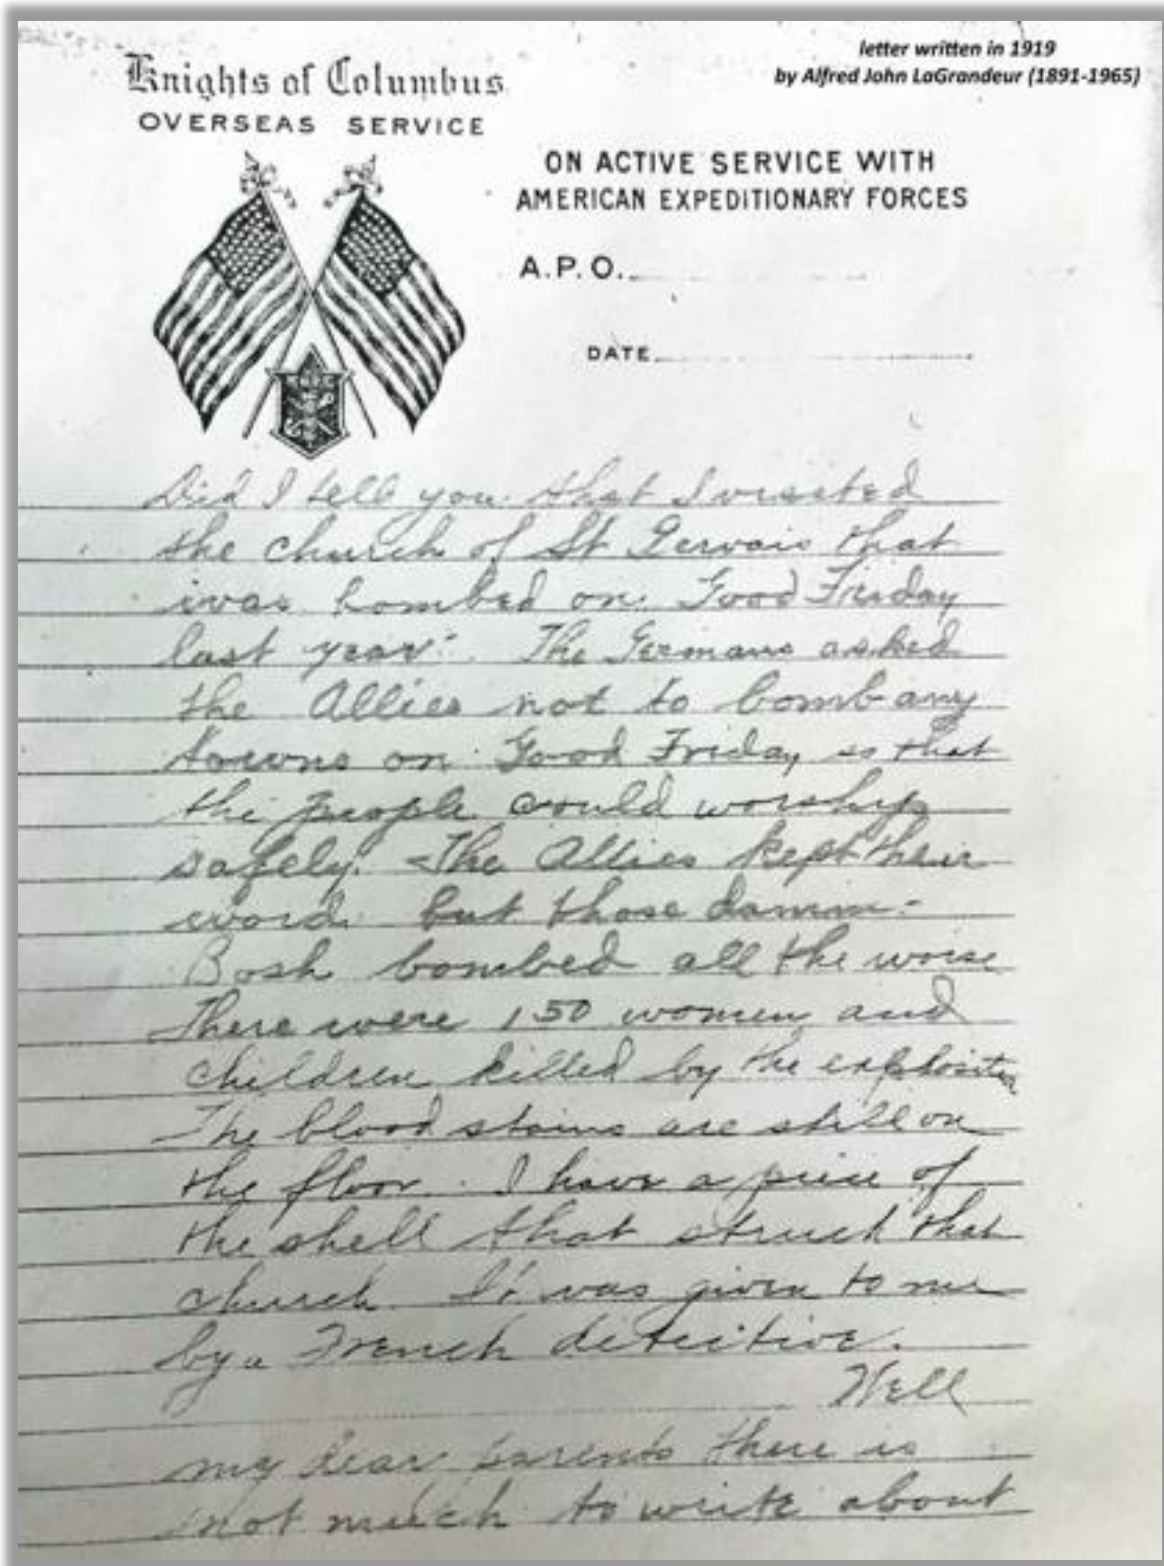 letter written in 1919
by Alfred John LaGrandeur (1891-1965)
Knights of Columbus
OVERSEAS SERVICE
ON ACTIVE SERVICE WITH
AMERICAN EXPEDITIONARY FORCES
A.P.O.
DATE
Did I tell you that I visited
the church of St Gervais that
was bombed on Good Friday
last year. The Germans asked
the Allies not to bomb any
towns on Good Friday so that
the people could worship
safely. The Allies kept their
word but those damm-
Bosh bombed all the worse
There were 150 women and
children killed by the explosion
The blood stains are still on
the floor. I have a piece of
the shell that struck that
church. It was given to me
by a French detective.
Well
my dear parents there is
not much to write about